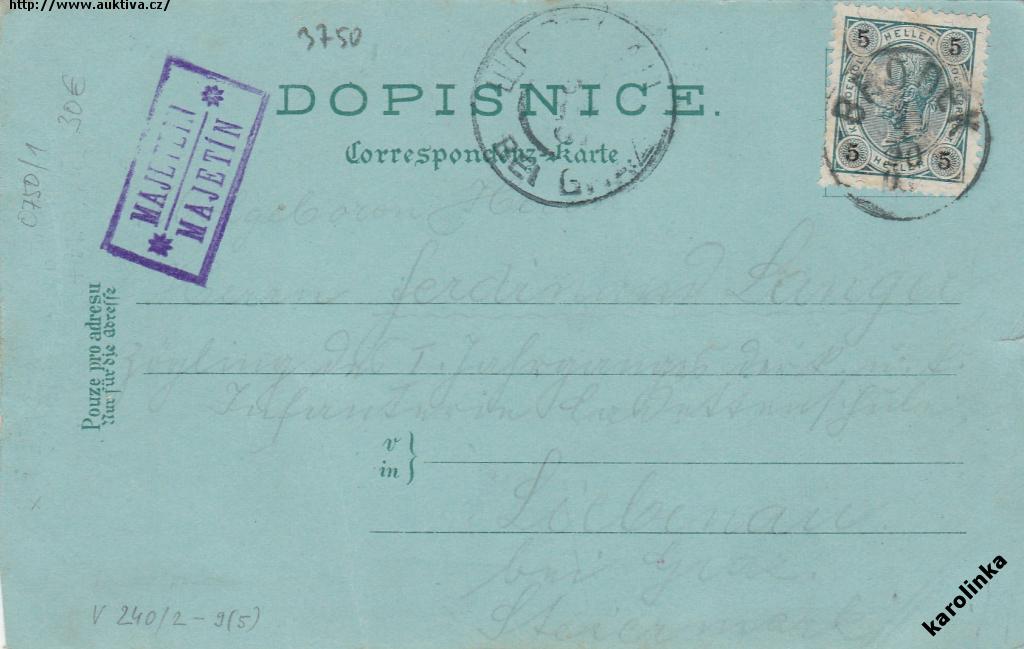 http://www.auktiva.cz/
3750
30€
0750/1
MAJETEIN
MAJETÍN
DOPISNICE.
Correspondenz-Karte
BEI G
5 HELLER 5
5 HELLER 5
Pouze pro adresu
Nur für die Adresse
Herrn Ferdinand
Zögling des I. Jahrganges der k. u. k.
Infanterie Cadettenschule
v
in
Liebenau
bei Graz.
Steiermark
V 240/2-9(5)
karolinka